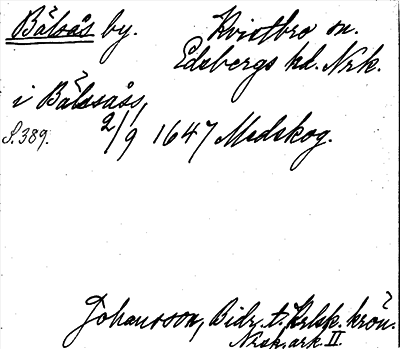 Bålsås by. Kvistbro sn.
Edsbergs hd. Nrk.
i Bålssåss,
S. 389. 2/9 1647 Medskog.
Johansson, Bidr. t. Krlsk. krön.
Nrsk. ark. II.